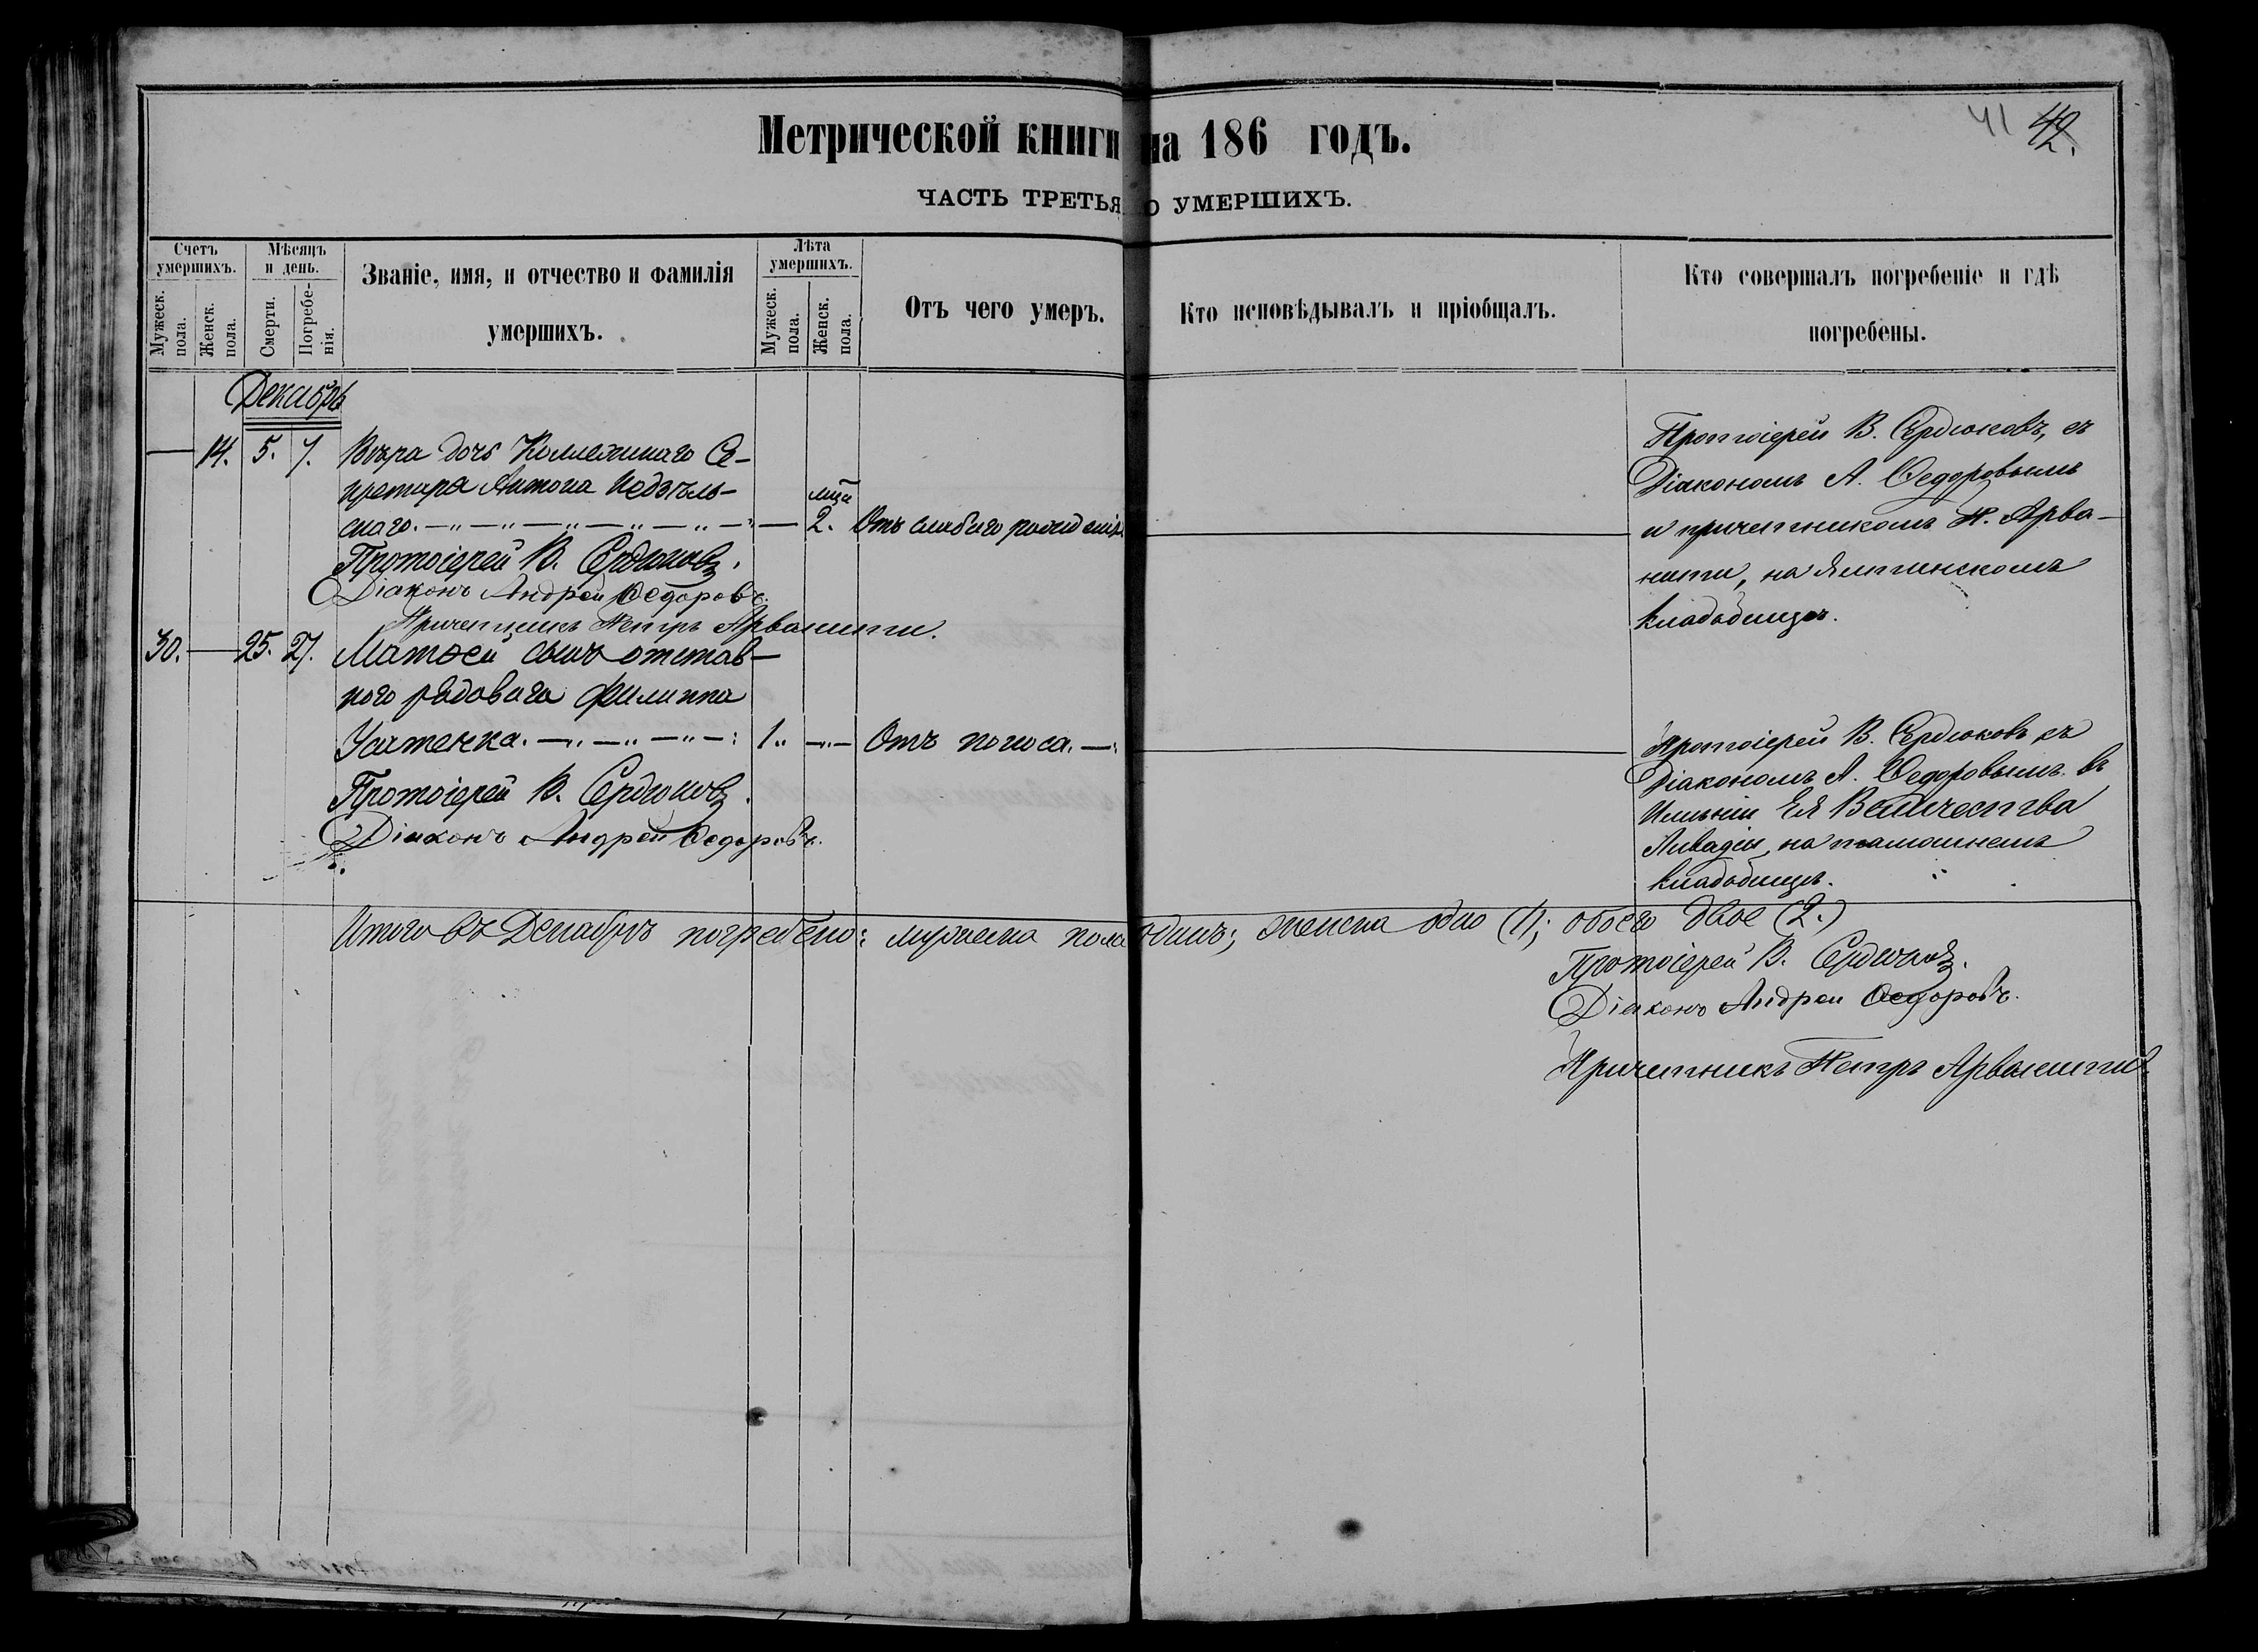 Метрической книги на 186 годъ.
41 42.
ЧАСТЬ ТРЕТЬЯ О УМЕРШИХЪ.
Счетъ умершихъ.
Мужеск. пола.
Женск. пола.
Мѣсяцъ и день.
Смерти.
Погребе-
нія.
Званіе, имя, и отчество и фамилія
умершихъ.
Лѣта умершихъ.
Мужеск. пола.
Женск. пола.
Отъ чего умеръ.
Кто исповѣдывалъ и пріобщалъ.
Кто совершалъ погребеніе и гдѣ
погребены.
Декабрь
— 14. 5. 7. Вѣра дочь Коллежскаго Се-
кретаря Антона Недзѣль-
скаго. — 2. Отъ слабаго рожденія
Протоіерей В. Сердюковъ.
Діаконъ Андрей Ѳедоровъ.
Причетникъ Петръ Арванити.
Протоіерей В. Сердюковъ, съ
Діакономъ А. Ѳедоровымъ
и причетникомъ П. Арва-
нити, на Ялтинскомъ
кладбищѣ.
30. — 25. 27. Матѳей сынъ отстав-
ного рядоваго Филиппа
Усатенка. 1. — Отъ поноса.
Протоіерей В. Сердюковъ.
Діаконъ Андрей Ѳедоровъ.
Протоіерей В. Сердюковъ съ
Діакономъ А. Ѳедоровымъ въ
Имѣніи Ея Величества
Ливадіи, на тамошнемъ
кладбищѣ.
Итого въ Декабрѣ погребено: мужеска пола одинъ; женска одно (1); обоего двое (2.)
Протоіерей В. Сердюковъ.
Діаконъ Андрей Ѳедоровъ.
Причетникъ Петръ Арванити.